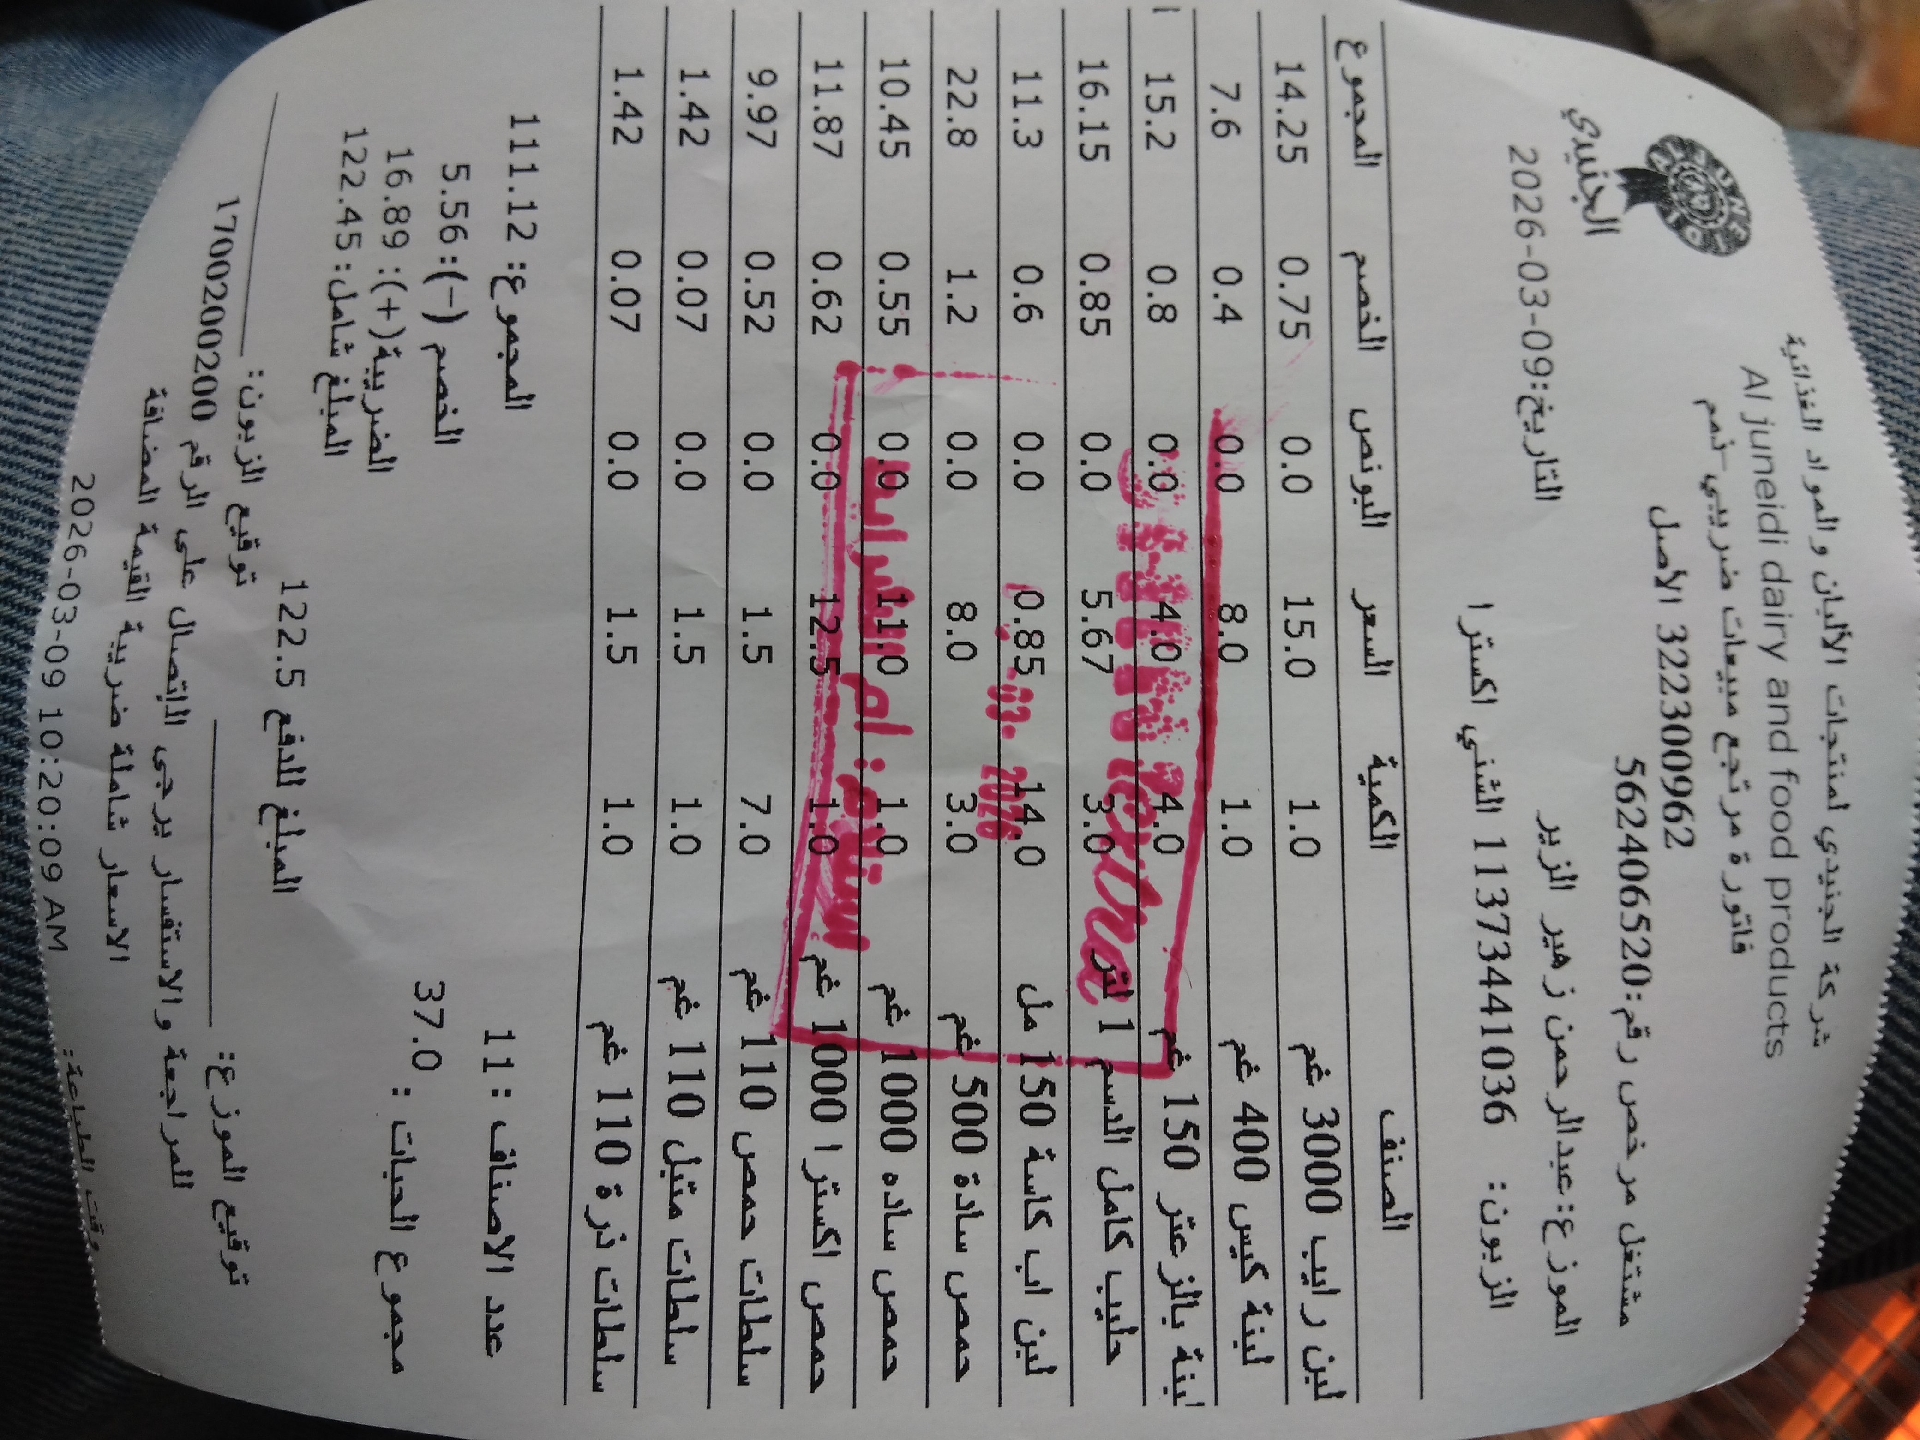 شركة الجنيدي لمنتجات الألبان والمواد الغذائية
Al juneidi dairy and food products
فاتورة مرتجع مبيعات ضريبي-ذمم
322300962 الأصل
مشتغل مرخص رقم:562406520
الجنيدي
التاريخ:2026-03-09
الموزع:عبدالرحمن زهير الزير
الزبون: 11373441036 الشني اكسترا
الصنف الكمية السعر البونص الخصم المجموع
لبن رايب 3000 غم 1.0 15.0 0.0 0.75 14.25
لبنة كيس 400 غم 1.0 8.0 0.0 0.4 7.6
لبنة بالزعتر 150 غم 4.0 4.0 0.0 0.8 15.2
حليب كامل الدسم 1 لتر 3.0 5.67 0.0 0.85 16.15
لبن اب كاسة 150 مل 14.0 0.85 0.0 0.6 11.3
حمص سادة 500 غم 3.0 8.0 0.0 1.2 22.8
حمص ساده 1000 غم 1.0 11.0 0.0 0.55 10.45
حمص اكسترا 1000 غم 1.0 12.5 0.0 0.62 11.87
سلطات حمص 110 غم 7.0 1.5 0.0 0.52 9.97
سلطات متبل 110 غم 1.0 1.5 0.0 0.07 1.42
سلطات ذرة 110 غم 1.0 1.5 0.0 0.07 1.42
extra
03. 2026
عدد الاصناف :11
المجموع: 111.12
مجموع الحبات : 37.0
الخصم (-):5.56
الضريبة(+): 16.89
المبلغ شامل:122.45
المبلغ للدفع 122.5
توقيع الموزع:
توقيع الزبون:
للمراجعة والاستفسار يرجى الاتصال على الرقم 1700200200
الاسعار شاملة ضريبة القيمة المضافة
وقت الطباعة: 2026-03-09 10:20:09 AM